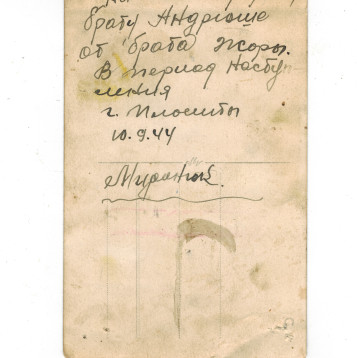 брату Андрюше
от брата Жоры.
В период наступ
ления
г. Плоешты
10.9.44